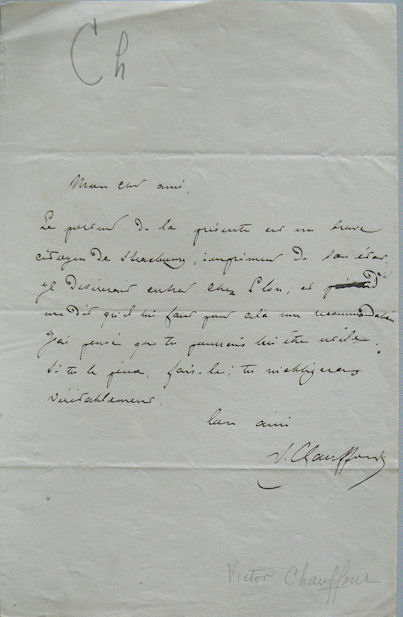 Ch
Mon cher ami,
Le porteur de la présente est un brave
citoyen de Strasbourg, imprimeur de son état,
il désirerait entrer chez Plon, et
me dit qu'il lui faut pour cela une recommandation
J'ai pensé que tu pourrais lui être utile.
Si tu le peux, fais-le; tu m'obligeras
véritablement.
ton ami
V. Chauffour
Victor Chauffour